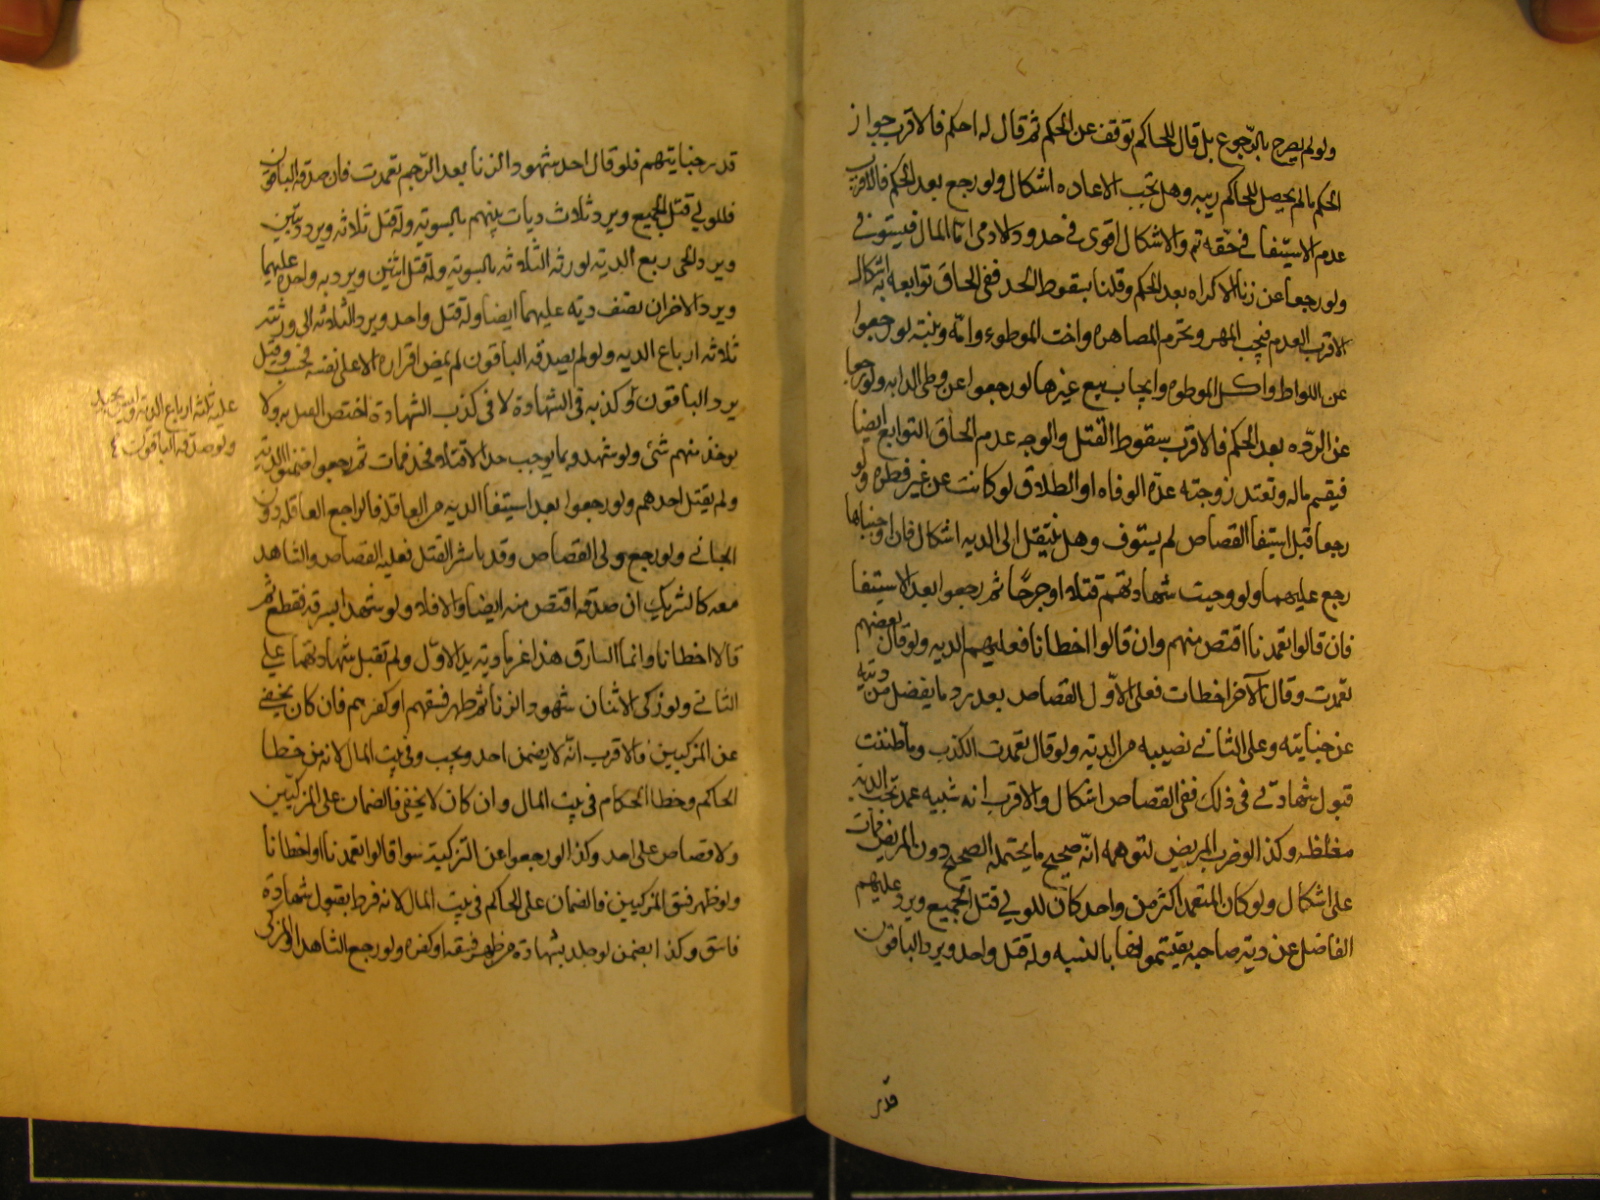 ولو لم يصرح بالرجوع بل قال للحاكم توقف عن الحكم ثم قال له احكم فالاقرب جواز
الحكم ما لم يحصل للحاكم ريبه وهل تجب الاعاده اشكال ولو رجع بعد الحكم فالاقرب
عدم الاستيفا في حقه تم والاشكال اقوى في حدود لادمى اما المال فيستوفى
ولو رجعا عن زنا الاكراه بعد الحكم وقلنا بسقوط الحد ففى الحاق توابعه به اشكال
الاقرب العدم فيجب المهر وتحرم المصاهره واخت الموطوء وامه وبنته لو رجعوا
عن اللواط واكل الموطوه وايجاب بيع غيرها لو رجعوا عن وطى الدابه ولو رجعا
عن الرده بعد الحكم فالاقرب سقوط القتل والوجه عدم الحاق التوابع ايضا
فيقسم ماله وتعتد زوجته عدة الوفاه او الطلاق لو كانت عن غير فطره ولو
رجعا قبل استيفا القصاص لم يستوف وهل ينتقل الى الديه اشكال فان اوجبناها
رجع عليهما ولو وجبت شهادتهم قتلا او جرحا ثم رجعوا بعد الاستيفا
فان قالوا تعمدنا اقتص منهم وان قالوا اخطانا فعليهم الديه ولو قال بعضهم
تعمدت وقال الآخر اخطات فعلى الاول القصاص بعد رد ما يفضل من ديته
عن جنايته وعلى الثاني نصيبه من الديه ولو قال تعمدت الكذب وما ظننت
قبول شهادتى فى ذلك ففى القصاص اشكال والاقرب انه شبيه عمد تجب الديه
مغلظه وكذا لو ضرب المريض لتوهمه انه صحيح ما يحتمله الصحيح دون المريض فمات
على اشكال ولو كان المتعمد اكثر من واحد كان للولي قتل الجميع ويرد عليهم
الفاضل عن دية صاحبه يقتسمونها بالنسبه وله قتل واحد ويرد الباقون
قدر
قدر جنايتهم فلو قال احد شهود الزنا بعد الرجم تعمدت فان صدقه الباقون
فللولي قتل الجميع ويرد ثلاث ديات بينهم بالسويه وله قتل ثلاثه ويرد ديتين
ويرد الحى ربع الديه لورثه الثلاثه بالسويه وله قتل اثنين ويرد ديه واحده عليهما
ويرد الاخران نصف ديه عليهما ايضا وله قتل واحد ويرد الثلاثه الى ورثته
ثلاثه ارباع الديه ولو لم يصدقه الباقون لم يمض اقراره الا على نفسه فحسب وقيل
يرد الباقون لو كذبه فى الشهادة لا فى كذب الشهادة اختص القتل به ولا
يوخذ منهم شئ ولو شهدوا بما يوجب حدا لا قتلا فحد فمات ثم رجعوا ضمنوا الديه
ولم يقتل احدهم ولو رجعوا بعد استيفا الديه من العاقله فالراجع العاقله دون
الجاني ولو رجع ولى القصاص وقد باشر القتل فعليه القصاص والشاهد
معه كالشريك ان صدقه اقتص منه ايضا والا فلا ولو شهدا بسرقه فقطع ثم
قالا اخطانا وانما السارق هذا غرما ديه يد الاول ولم تقبل شهادتهما على
الثاني ولو زكى الاثنان شهود الزنا ثم ظهر فسقهم او كفرهم فان كان يخفى
عن المزكيين فالاقرب انه لا يضمن احد ويجب فى بيت المال لانه من خطا
الحاكم وخطا الحكام فى بيت المال وان كان لا يخفى فالضمان على المزكيين
ولا قصاص على احد وكذا لو رجعوا عن التزكيه سوا قالوا تعمدنا او اخطانا
ولو ظهر فسق المزكيين فالضمان على الحاكم فى بيت المال لانه فرط بقبول شهادة
فاسق وكذا يضمن لو جلد بشهادة من ظهر فسقه او كفره ولو رجع الشاهد او المزكى
عليه ثلثه ارباع الديه
ولو صدقه الباقون